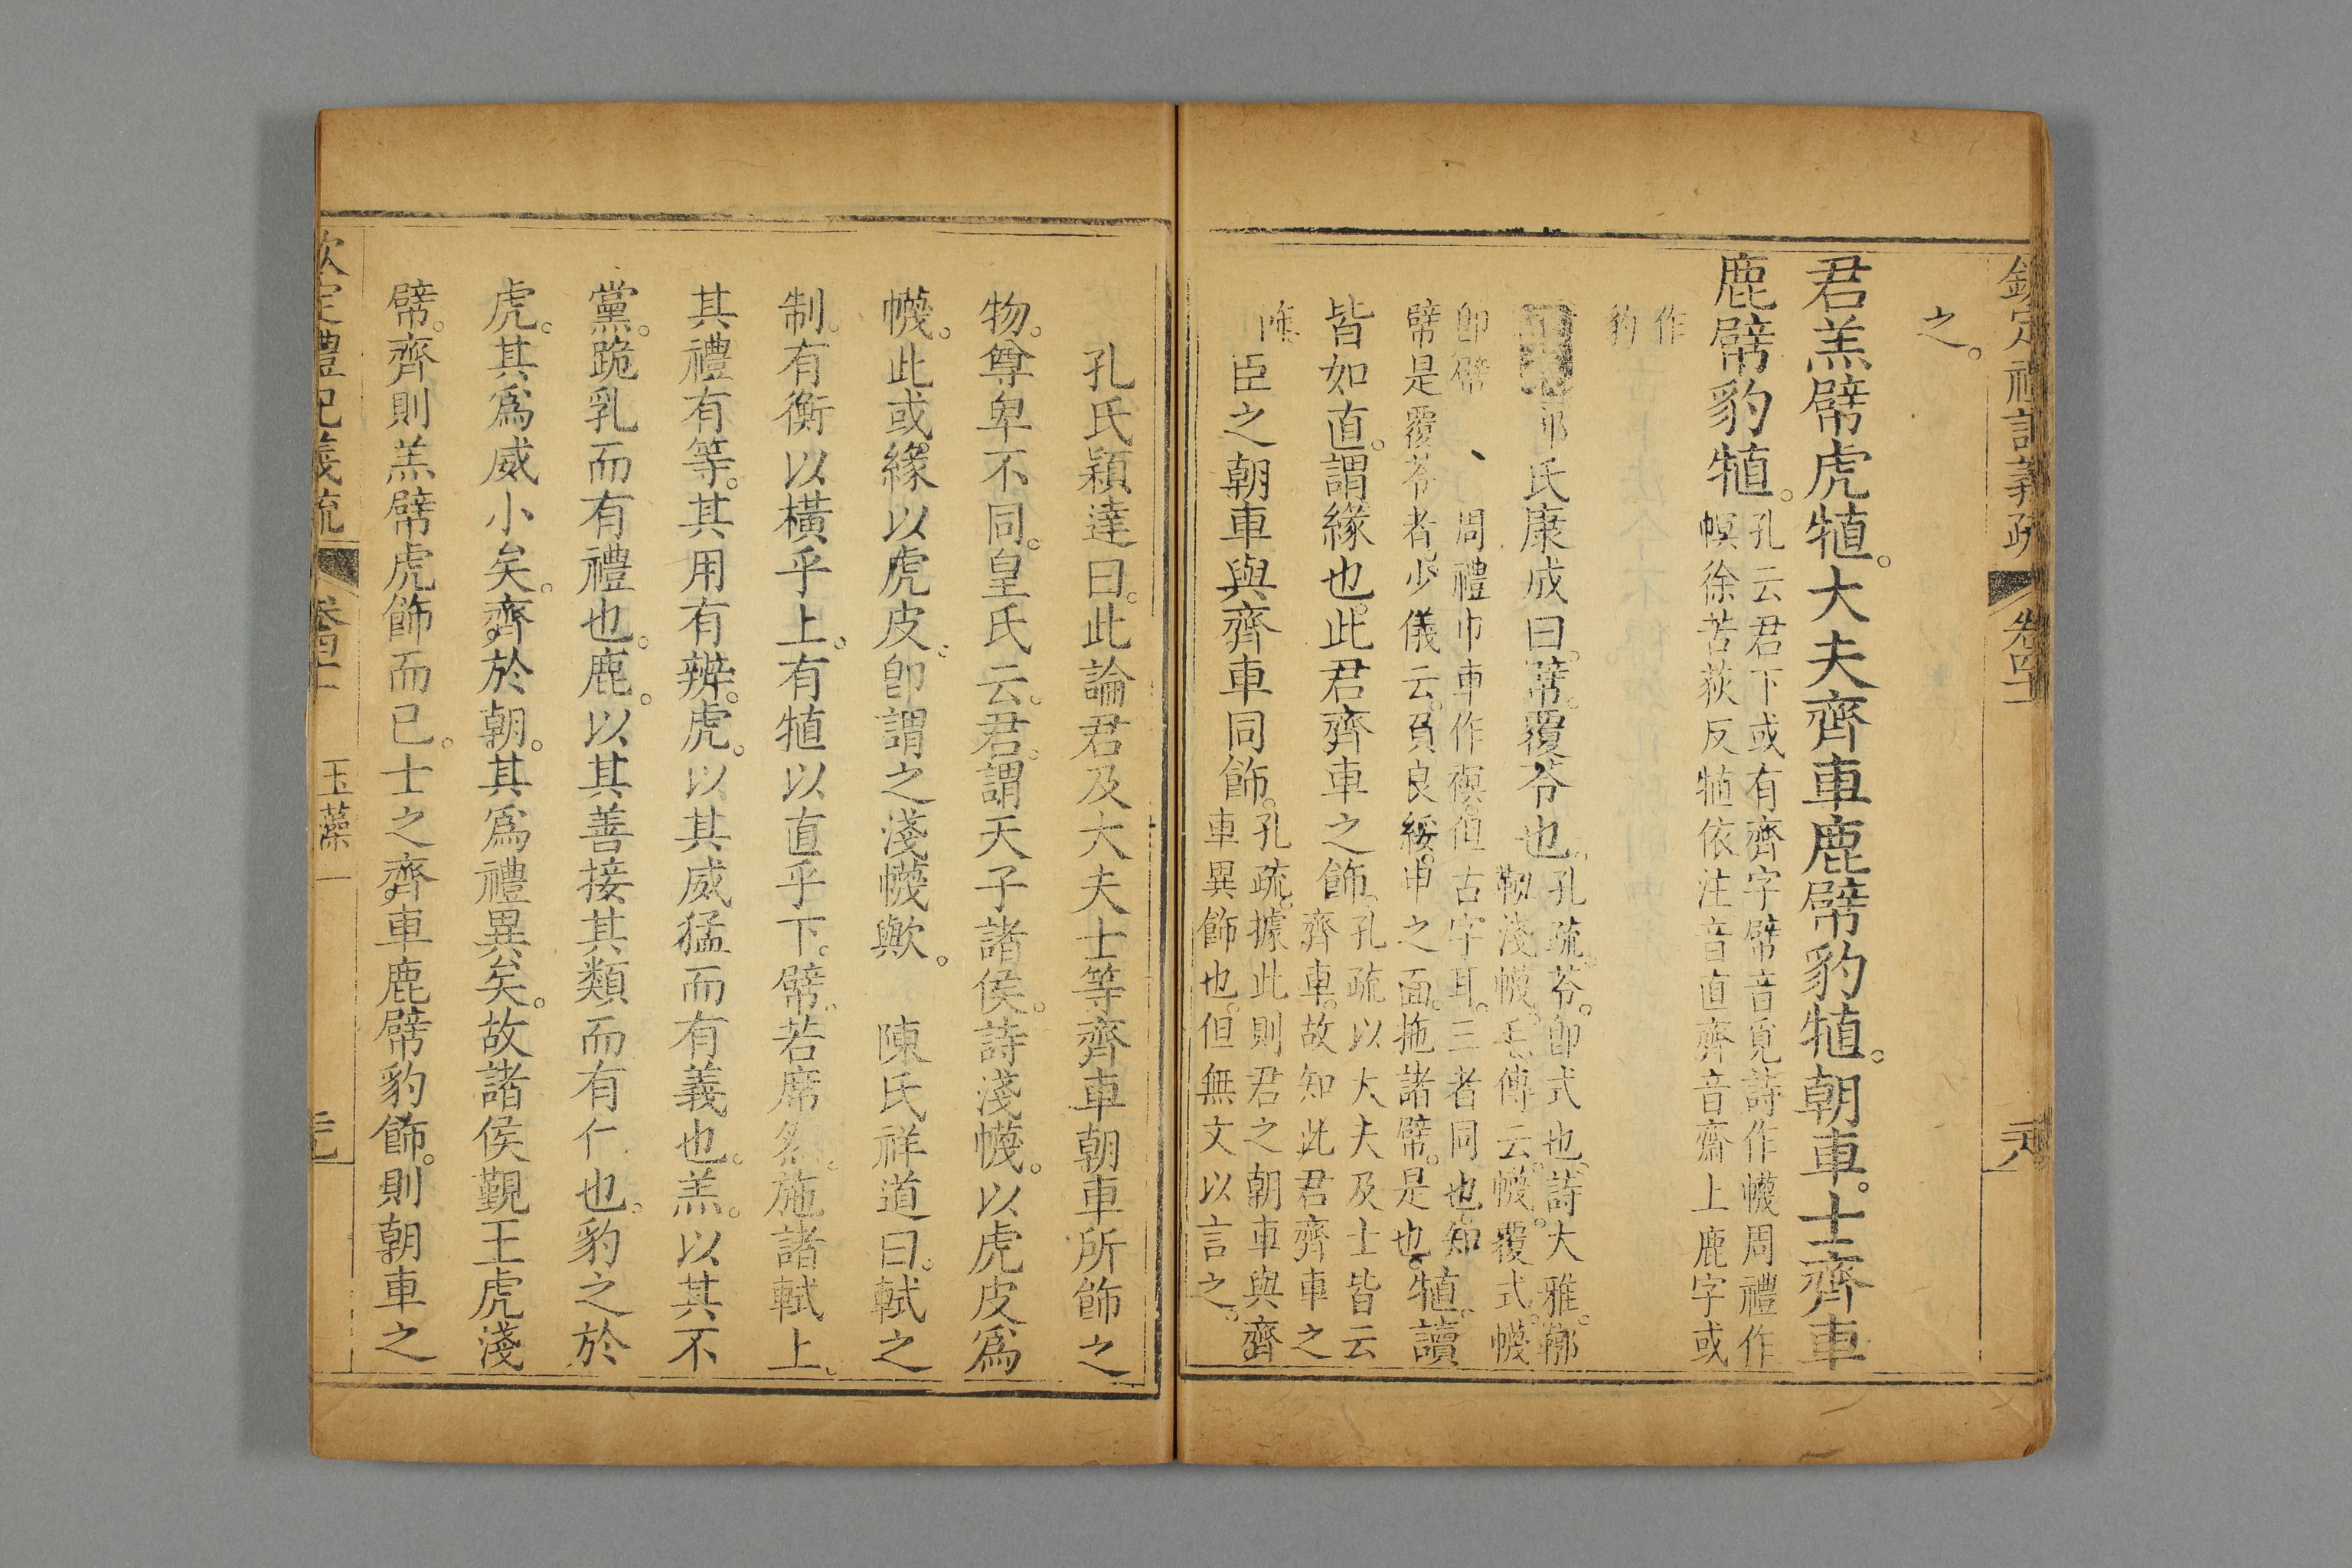 欽定禮記義疏 卷四十一
之。
君羔幦虎犆。大夫齊車鹿幦豹犆。朝車。士齊車
鹿幦豹犆。
孔云君下或有齊字幦音覓詩作幭周禮作
幎徐苦荻反犆依注音直齊音齋上鹿字或
作
豹
鄭氏康成曰。幦。覆苓也。
孔疏。苓。卽式也。詩大雅。鞹
鞃淺幭。毛傳云。幭。覆式。幭
卽幦 周禮巾車作䙏。但古字耳。三者同也。知
幦是覆苓者。少儀云。負良綏。申之面。拖諸幦。是也。
犆。讀
皆如直。謂緣也。此君齊車之飾。
孔疏以大夫及士皆云
齊車。故知此君齊車之
臣之朝車與齊車同飾。
孔疏。據此則君之朝車與齊
車異飾也。但無文以言之。
孔氏穎達曰。此論君及大夫士等齊車朝車所飾之
物。尊卑不同。皇氏云。君。謂天子諸侯。詩淺幭。以虎皮爲
幭。此或緣以虎皮。卽謂之淺幭歟。 陳氏祥道曰。軾之
制。有衡以橫乎上。有犆以直乎下。幦。若席名。施諸軾上。
其禮有等。其用有辨。虎。以其威猛而有義也。羔。以其不
黨。跪乳而有禮也。鹿。以其善接其類而有仁也。豹之於
虎。其爲威小矣。齊於朝。其爲禮異矣。故諸侯覲王虎淺
幦。齊則羔幦虎飾而已。士之齊車鹿幦豹飾。則朝車之
欽定禮記義疏 卷四十一 玉藻一